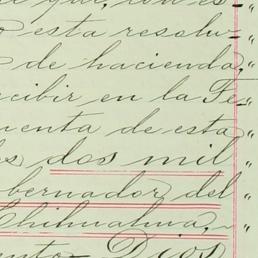 que, con es-
esta resolu-
de hacienda,
cibir en la Te-
uenta de esta
los dos mil
bernador del
Chihuahua,
Dios